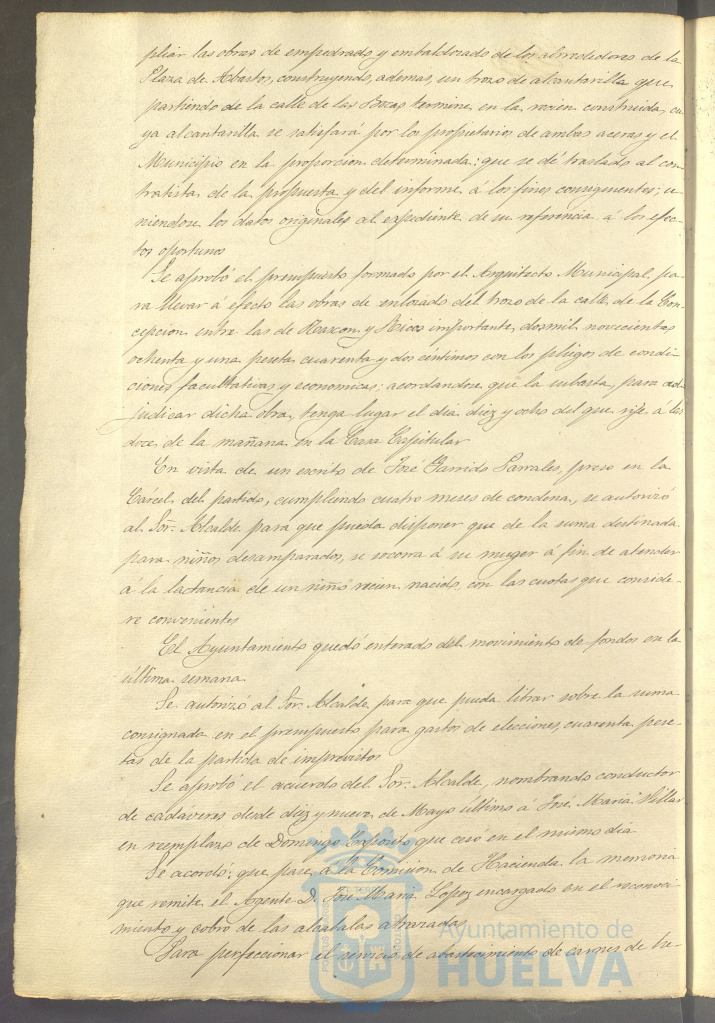 pliar las obras de empedrado y embaldozado de los alrrededores de la
Plaza de Abastos, construyendo, ademas, un trozo de alcantarilla que
partiendo de la calle de las Bocas termine en la recien construida, cu-
ya alcantarilla se satisfará por los propietarios de ambas aceras y el
Municipio en la proporcion determinada; que se dé traslado al con-
tratista de la propuesta y del informe á los fines consiguientes; u-
niendose los datos originales al expediente de su referencia á los efec-
tos oportunos
Se aprobó el presupuesto formado por el Arquitecto Municipal pa-
ra llevar á efecto las obras de enlozado del trozo de la calle de la Con-
cepcion entre las de Rascon y Ricos importante dosmil novecientas
ochenta y una peseta cuarenta y dos céntimos con los pliegos de condi-
ciones facultativas y economicas; acordandose que la subasta para ad-
judicar dicha obra, tenga lugar el dia diez y ocho del que rije á las
doce de la mañana en la Casa Capitular
En vista de un escrito de José Garrido Parrales, preso en la
Cárcel del partido, cumpliendo cuatro meses de condena, se autorizó
al Sor. Alcalde para que pueda disponer que de la suma destinada
para niños desamparados, se socorra á su muger á fin de atender
á la lactancia de un niño recien nacido, con las cuotas que conside-
re convenientes
El Ayuntamiento quedó enterado del movimiento de fondos en la
última semana
Se autorizó al Sor. Alcalde para que pueda librar sobre la suma
consignada en el presupuesto para gastos de elecciones, cuarenta pese-
tas de la partida de imprevistos
Se aprobó el acuerdo del Sor. Alcalde, nombrando conductor
de cadáveres desde diez y nueve de Mayo último á José Maria Villar
en reemplazo de Domingo Expósito que cesó en el mismo dia
Se acordó: que pase á la Comision de Hacienda la memoria
que remite el Agente D. José Maria Lopez encargado en el reconoci-
miento y cobro de las alcabalas atrazadas
Para perfeccionar el servicio de abastecimiento de carnes de he-
Ayuntamiento de
HUELVA